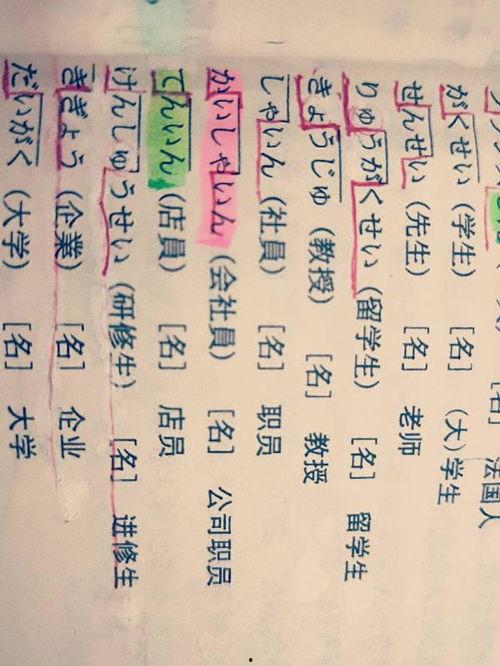 [名] 法国人
がくせい (学生) [名] (大)学生
せんせい (先生) [名] 老师
りゅうがくせい (留学生) [名] 留学生
きょうじゅ (教授) [名] 教授
しゃいん (社員) [名] 职员
かいしゃいん (会社員) [名] 公司职员
てんいん (店員) [名] 店员
けんしゅうせい (研修生) [名] 进修生
きぎょう (企業) [名] 企业
だいがく (大学) [名] 大学